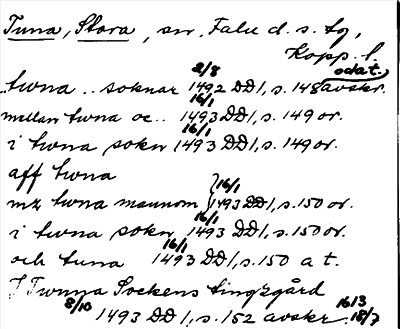 Tuna, Stora, sn, Falu d. s. tg,
Kopp. l.
odat.
2/8
twna .. soknar 1492 DD1, s. 148 avskr.
16/1
mellan twna oc.. 1493 DD1, s. 149 or.
16/1
i twna sokn 1493 DD1, s. 149 or.
aff twna
16/1
mz twna mannom 1493 DD1, s. 150 or.
16/1
i twna sokn 1493 DD1, s. 150 or.
16/1
och tuna 1493 DD1, s. 150 a t.
J Twnna Sockens tingzgård
8/10 16/3
1493 DD1, s. 152 avskr. 18/7